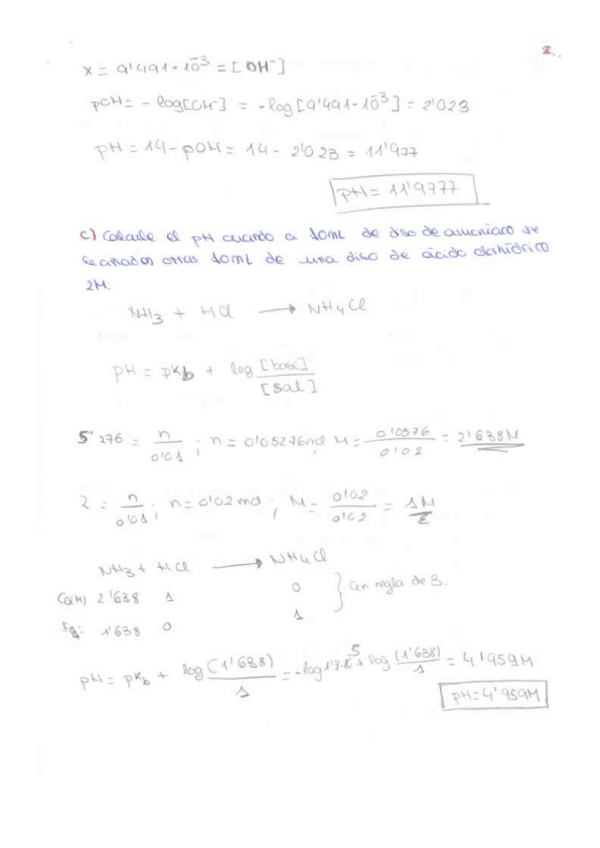 2.
x = 9'491·10⁻³ = [OH⁻]
pOH = -log[OH⁻] = -log[9'491·10⁻³] = 2'023
pH = 14 - pOH = 14 - 2'023 = 11'977
pH = 11'9777
c) Calcule el pH cuando a 10mL de diso de amoniaco se
le añaden otros 10mL de una diso de ácido clorhídrico
2M.
NH3 + HCl → NH4Cl
pH = pKb + log [base]/[sal]
5'276 = n/0'01 ; n = 0'05276mol, M = 0'0576/0'02 = 2'638M
2 = n/0'01 ; n = 0'02 mol ; M = 0'02/0'02 = 1M
NH3 + HCl → NH4Cl
Co(M) 2'638 1 0 } Con regla de 3.
Eq: 1'638 0 1
pH = pKb + log (1'638)/1 = -log 1'7·10⁻⁵ + log (1'638)/1 = 4'959M
pH = 4'959M